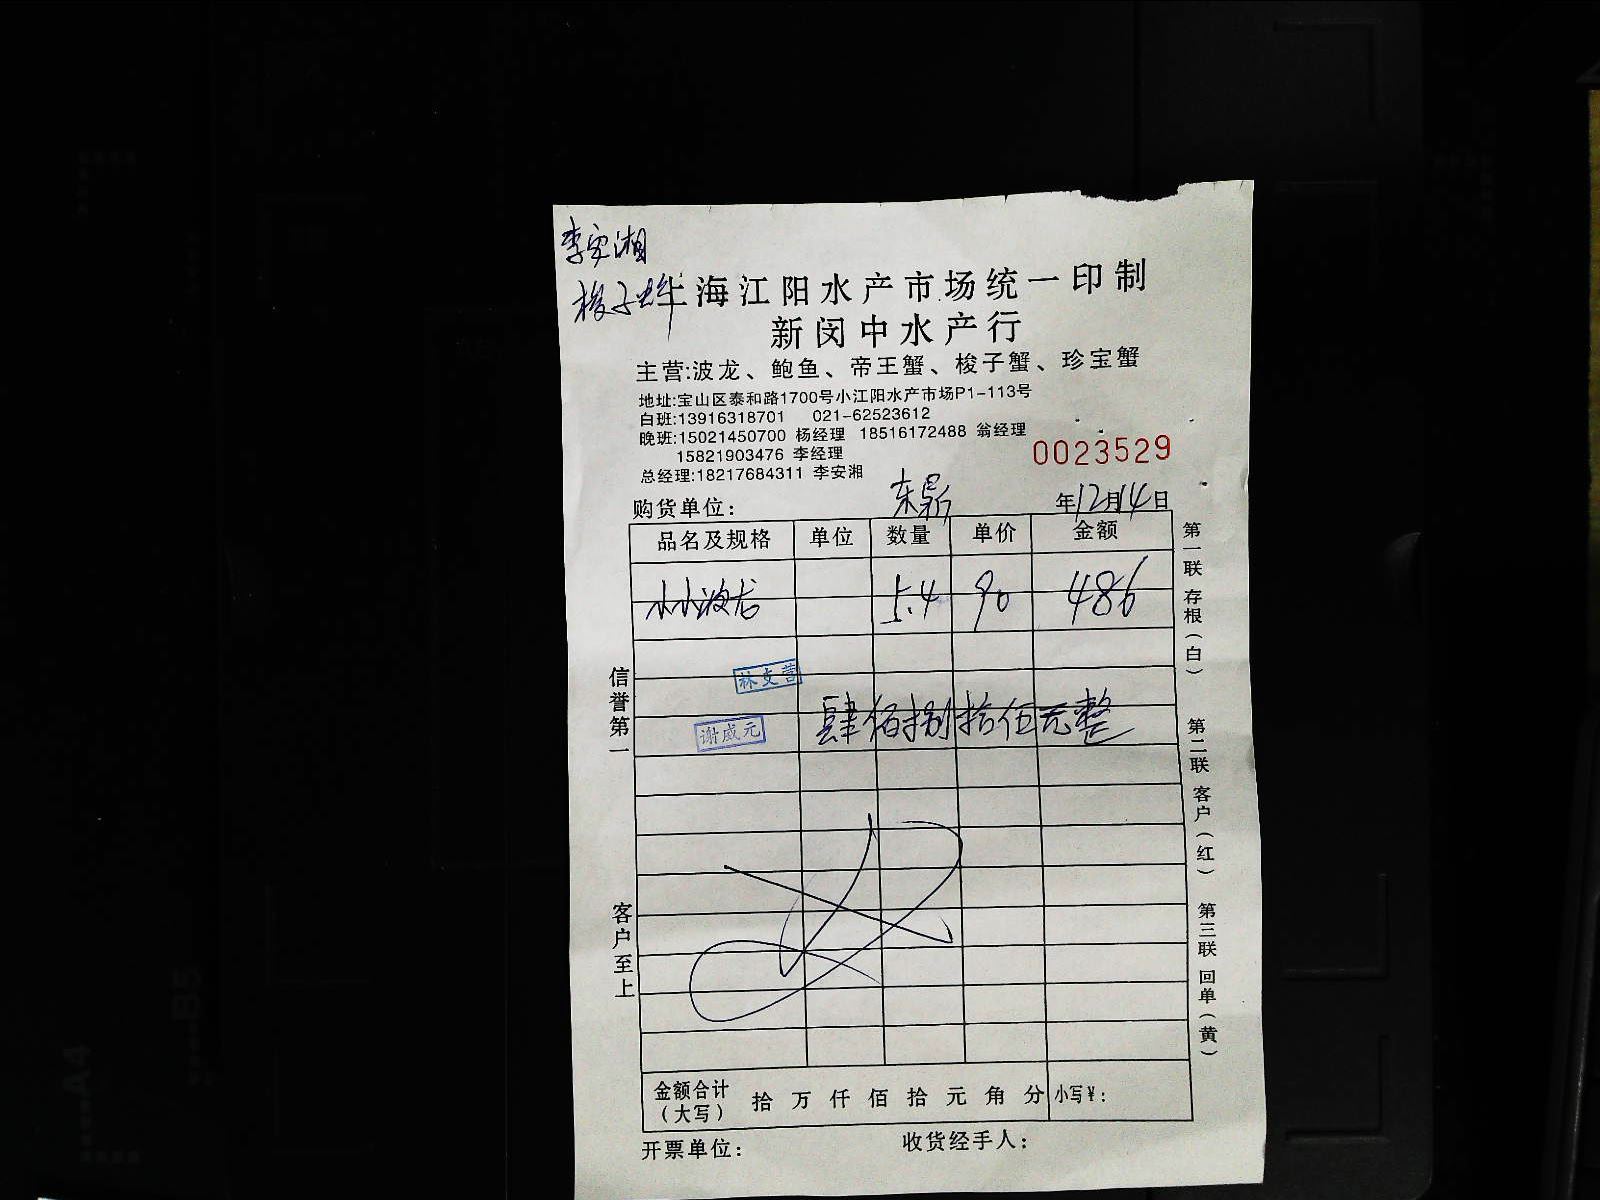 李安湘
梭子蟹
上海江阳水产市场统一印制
新闵中水产行
主营:波龙、鲍鱼、帝王蟹、梭子蟹、珍宝蟹
地址:宝山区泰和路1700号小江阳水产市场P1-113号
白班:13916318701 021-62523612
晚班:15021450700 杨经理 18516172488 翁经理
15821903476 李经理
0023529
总经理:18217684311 李安湘
购货单位: 东鼎 年12月14日
品名及规格 单位 数量 单价 金额
小小波龙 5.4 90 486
林支营
谢威元
肆佰捌拾伍元整
信誉第一
客户至上
第一联 存根（白）
第二联 客户（红）
第三联 回单（黄）
金额合计（大写） 拾 万 仟 佰 拾 元 角 分 小写¥:
开票单位: 收货经手人:
B5
A4